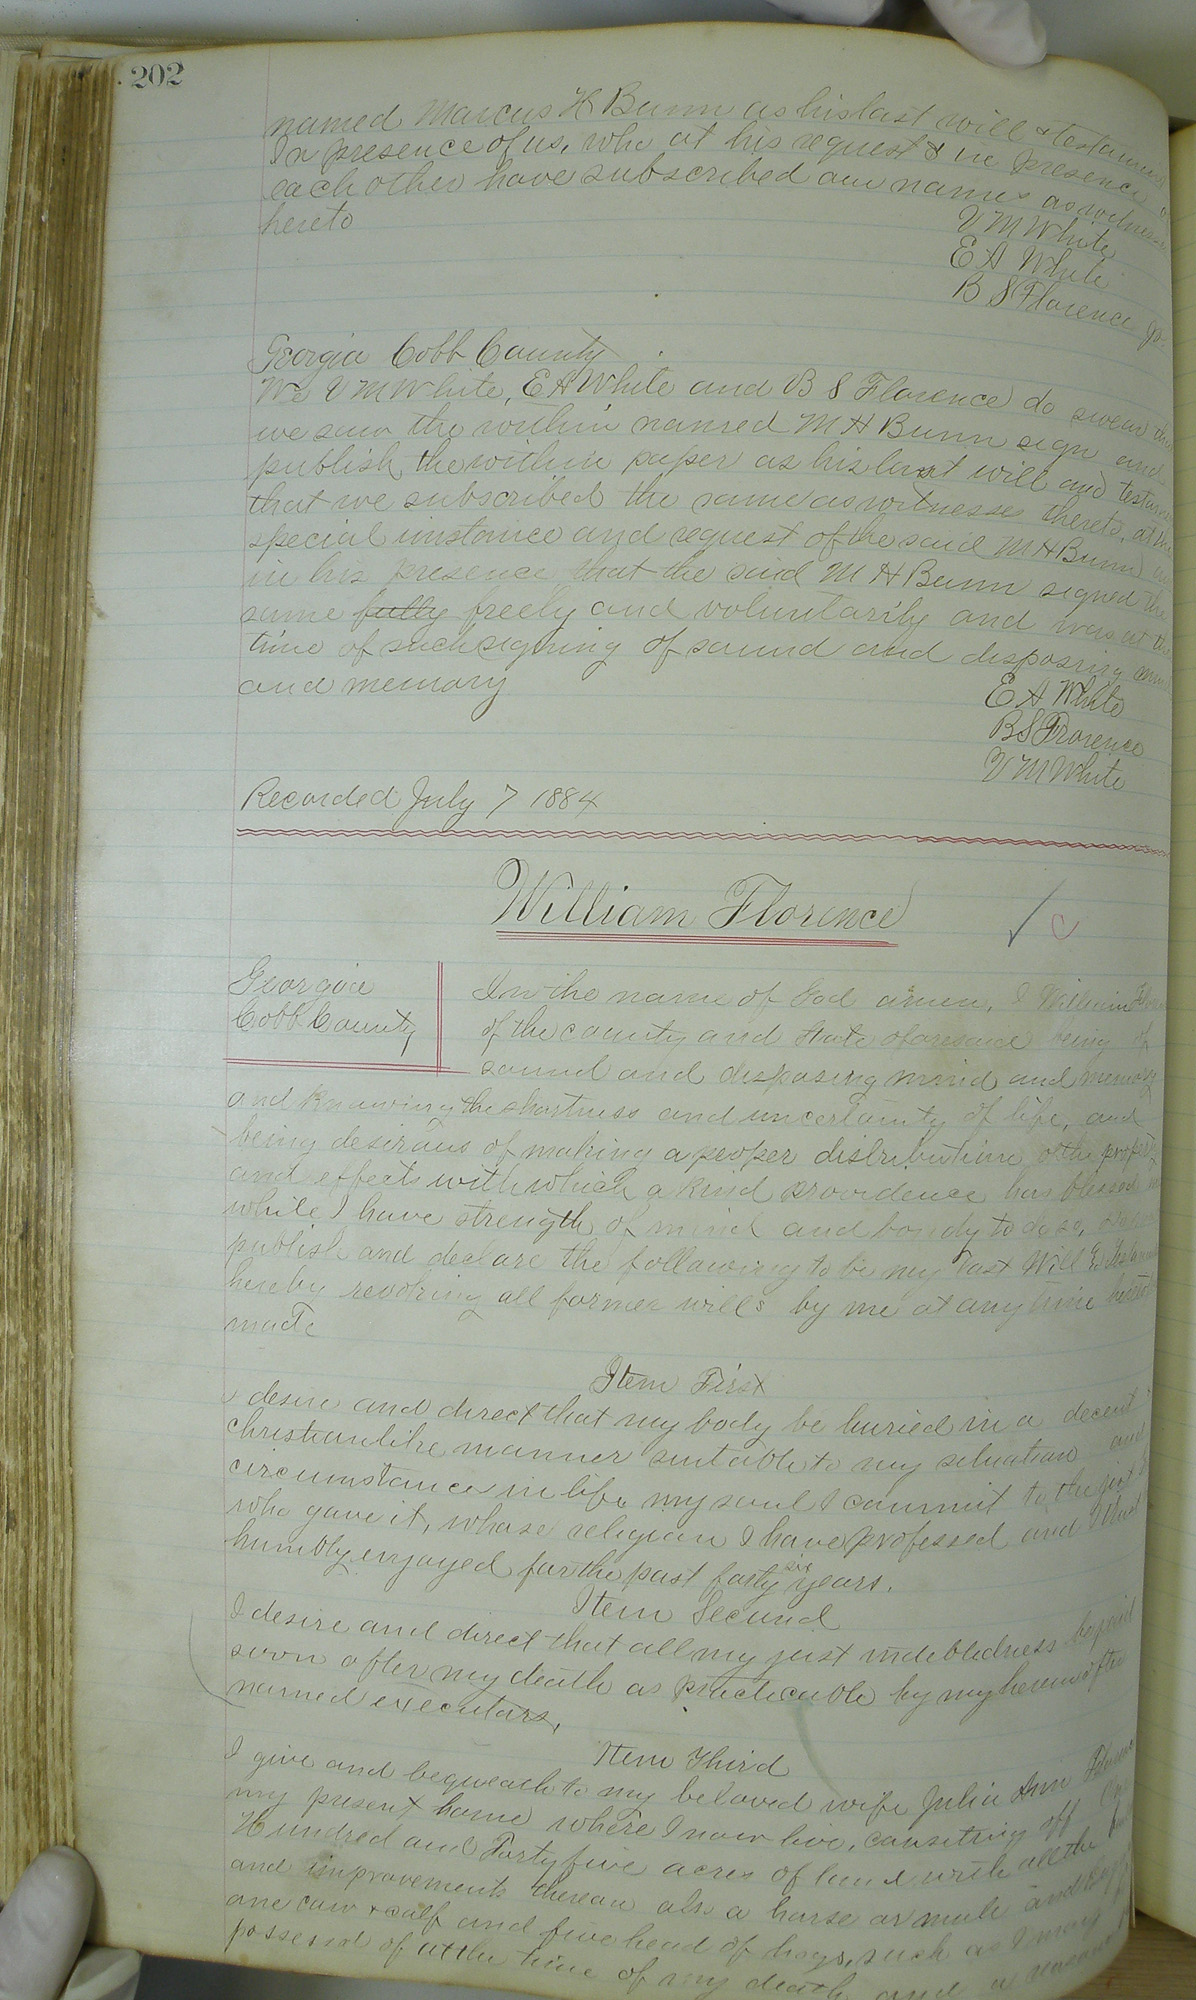 202
named Marcus H Bunn as his last will & testament
In presence of us, who at his request & in presence of
each other have subscribed our names as witness
hereto
V M White
E A White
B S Florence Jr.
Georgia Cobb County
We V M White, E A White and B S Florence do swear that
we saw the within named M H Bunn sign and
publish the within paper as his last will and testament
that we subscribed the same as witnesses thereto, at the
special instance and request of the said M H Bunn and
in his presence that the said M H Bunn signed the
same fully freely and voluntarily and was at the
time of such signing of sound and disposing mind
and memory
E A White
B S Florence
V M White
Recorded July 7 1884
William Florence
Georgia
Cobb County
In the name of God amen, I William Florence
of the county and State aforesaid being of
sound and disposing mind and memory
and knowing the shortness and uncertainty of life, and
being desirous of making a proper distribution of the property
and effects with which a kind providence has blessed me
while I have strength of mind and bondy to do so,
publish and declare the following to be my last Will & Testament
hereby revoking all former wills by me at any time heretofore
made
Item First
I desire and direct that my body be buried in a decent
christianlike manner suitable to my situation and
circumstances in life my soul I commit to the
who gave it, whose religion I have professed and I trust
humbly enjoyed for the past forty six years.
Item Second
I desire and direct that all my just indebtedness be paid
soon after my death as practicable by my hereinafter
named executors,
Item Third
I give and bequeath to my beloved wife Julia Ann Florence
my present home where I now live, consisting off One
Hundred and Forty five acres of land with all the
and improvements thereon also a horse or mule and
one cow & calf and five head of hogs, such as I may
possessed of at the time of my death and a